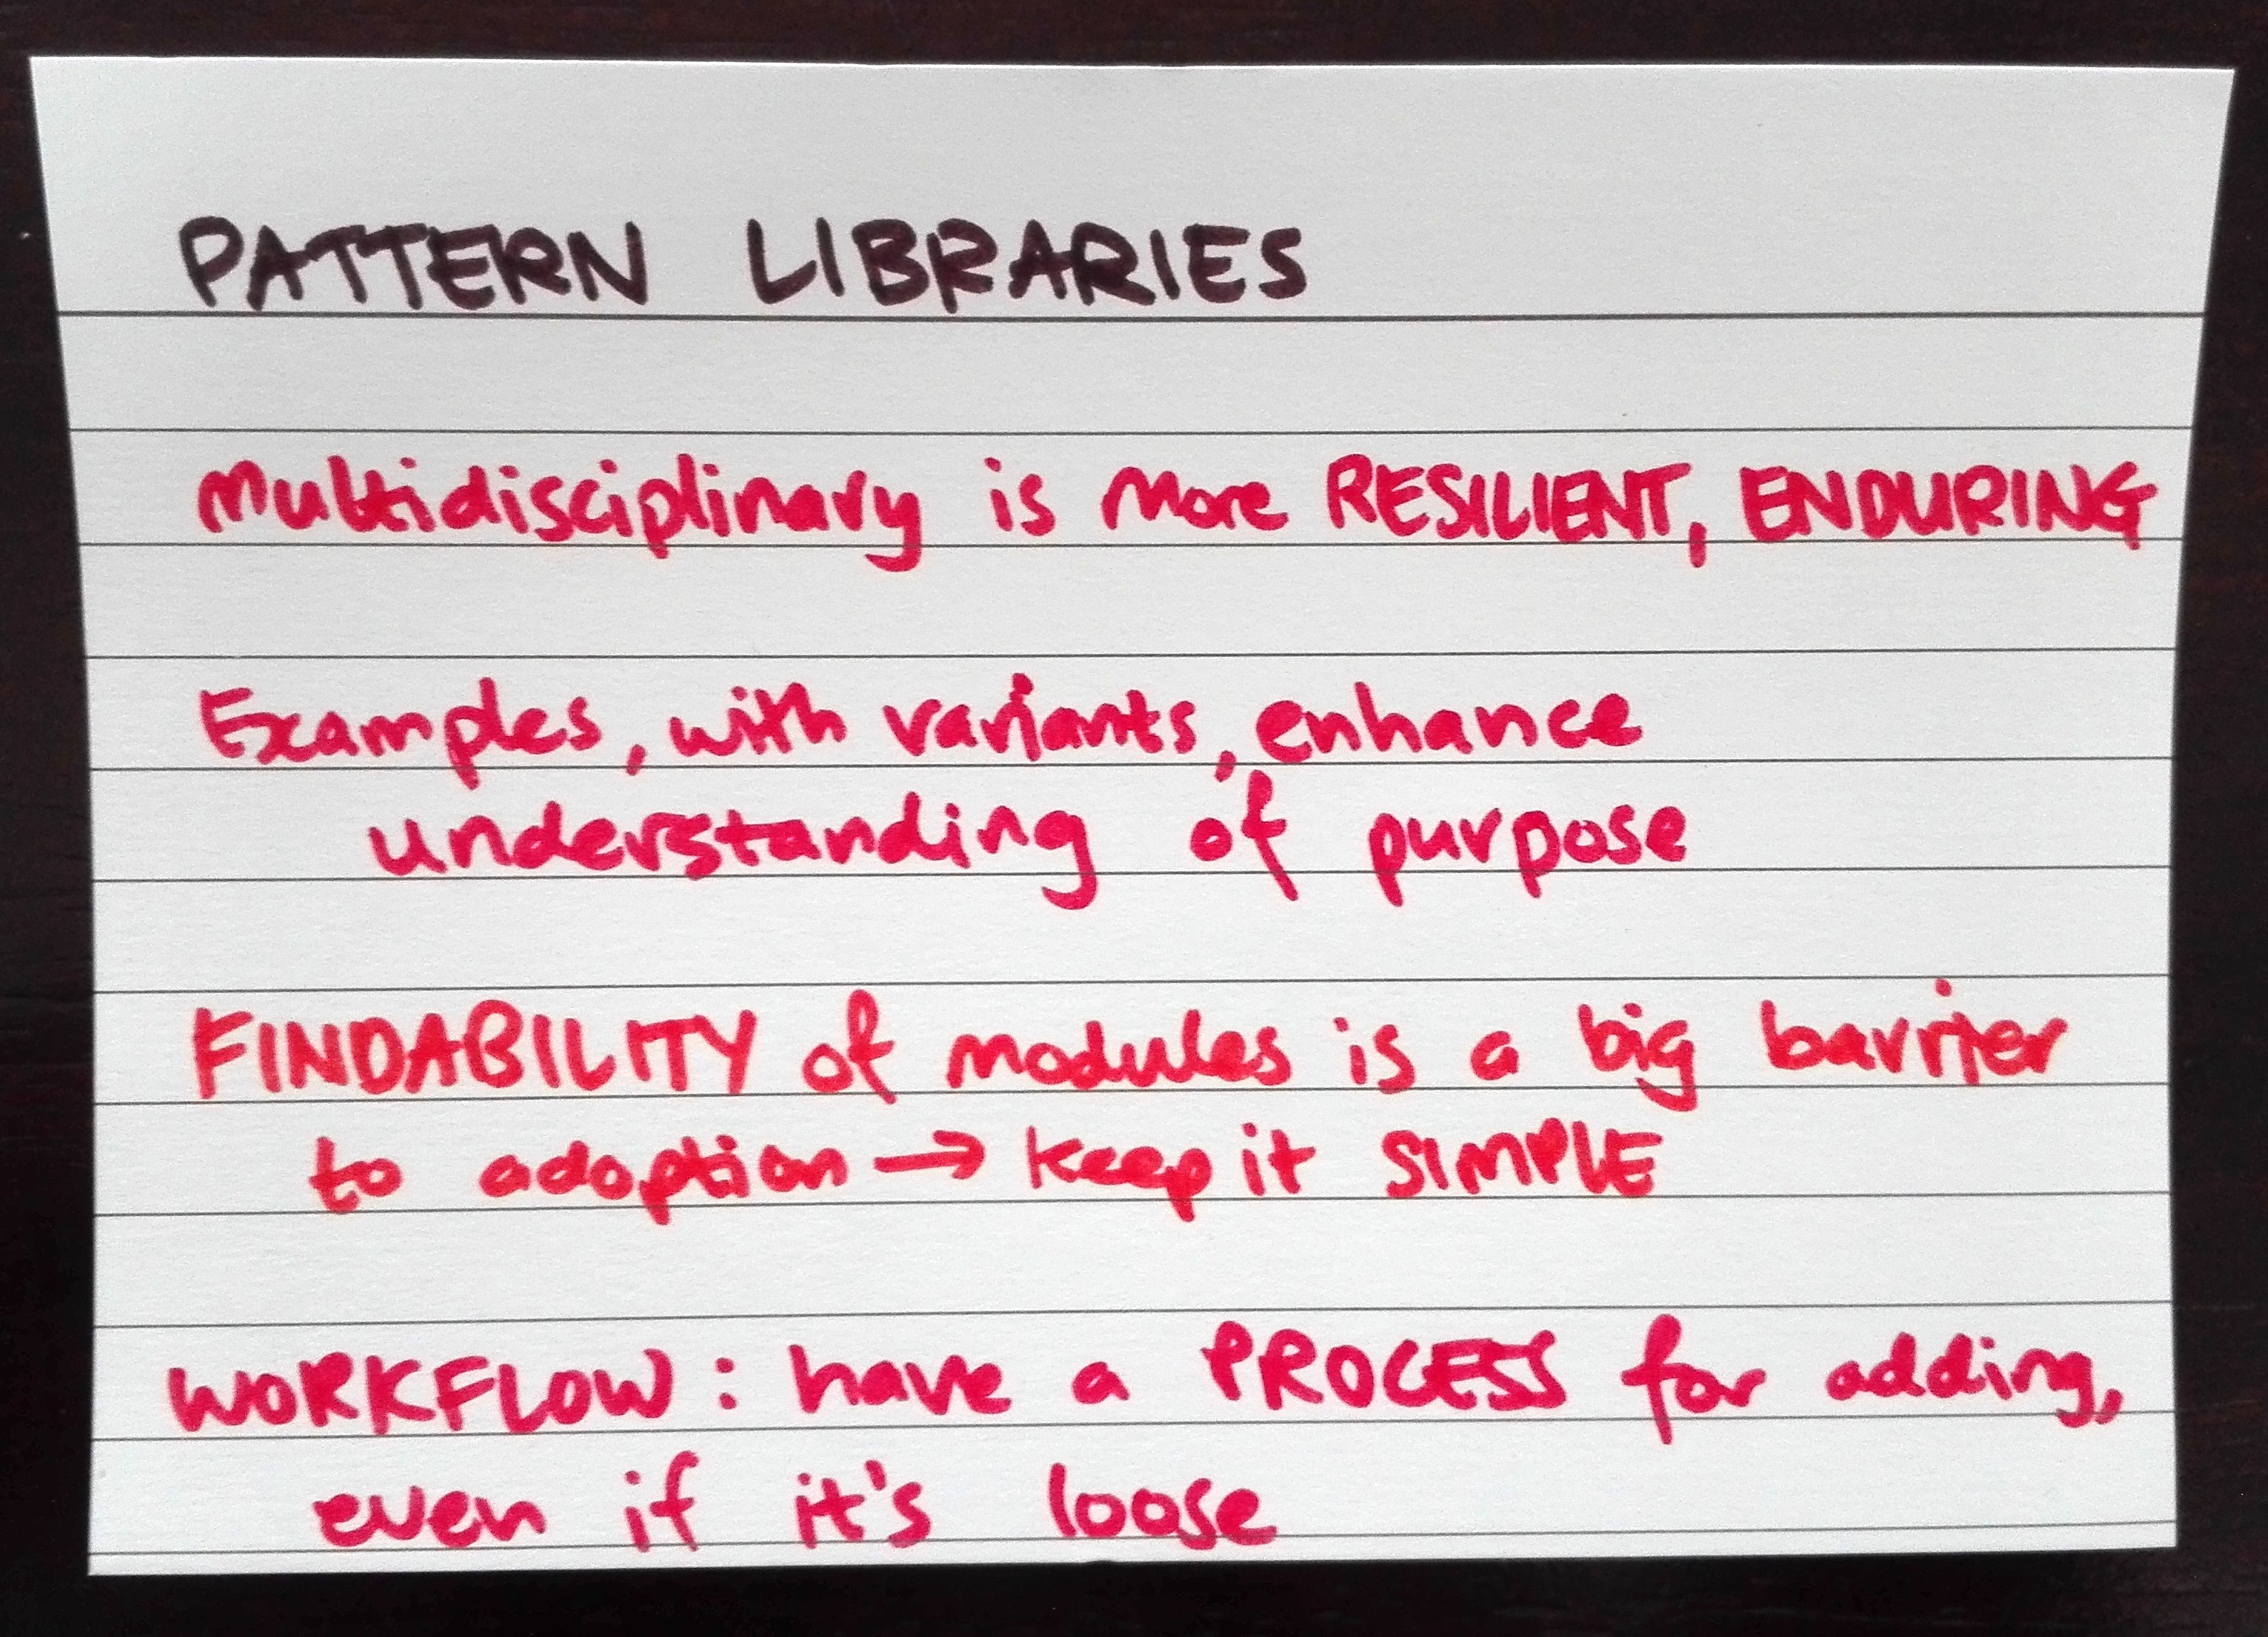 PATTERN LIBRARIES
Multidisciplinary is more RESILIENT, ENDURING
Examples, with variants, enhance
understanding of purpose
FINDABILITY of modules is a big barrier
to adoption → keep it SIMPLE
WORKFLOW: have a PROCESS for adding,
even if it's loose